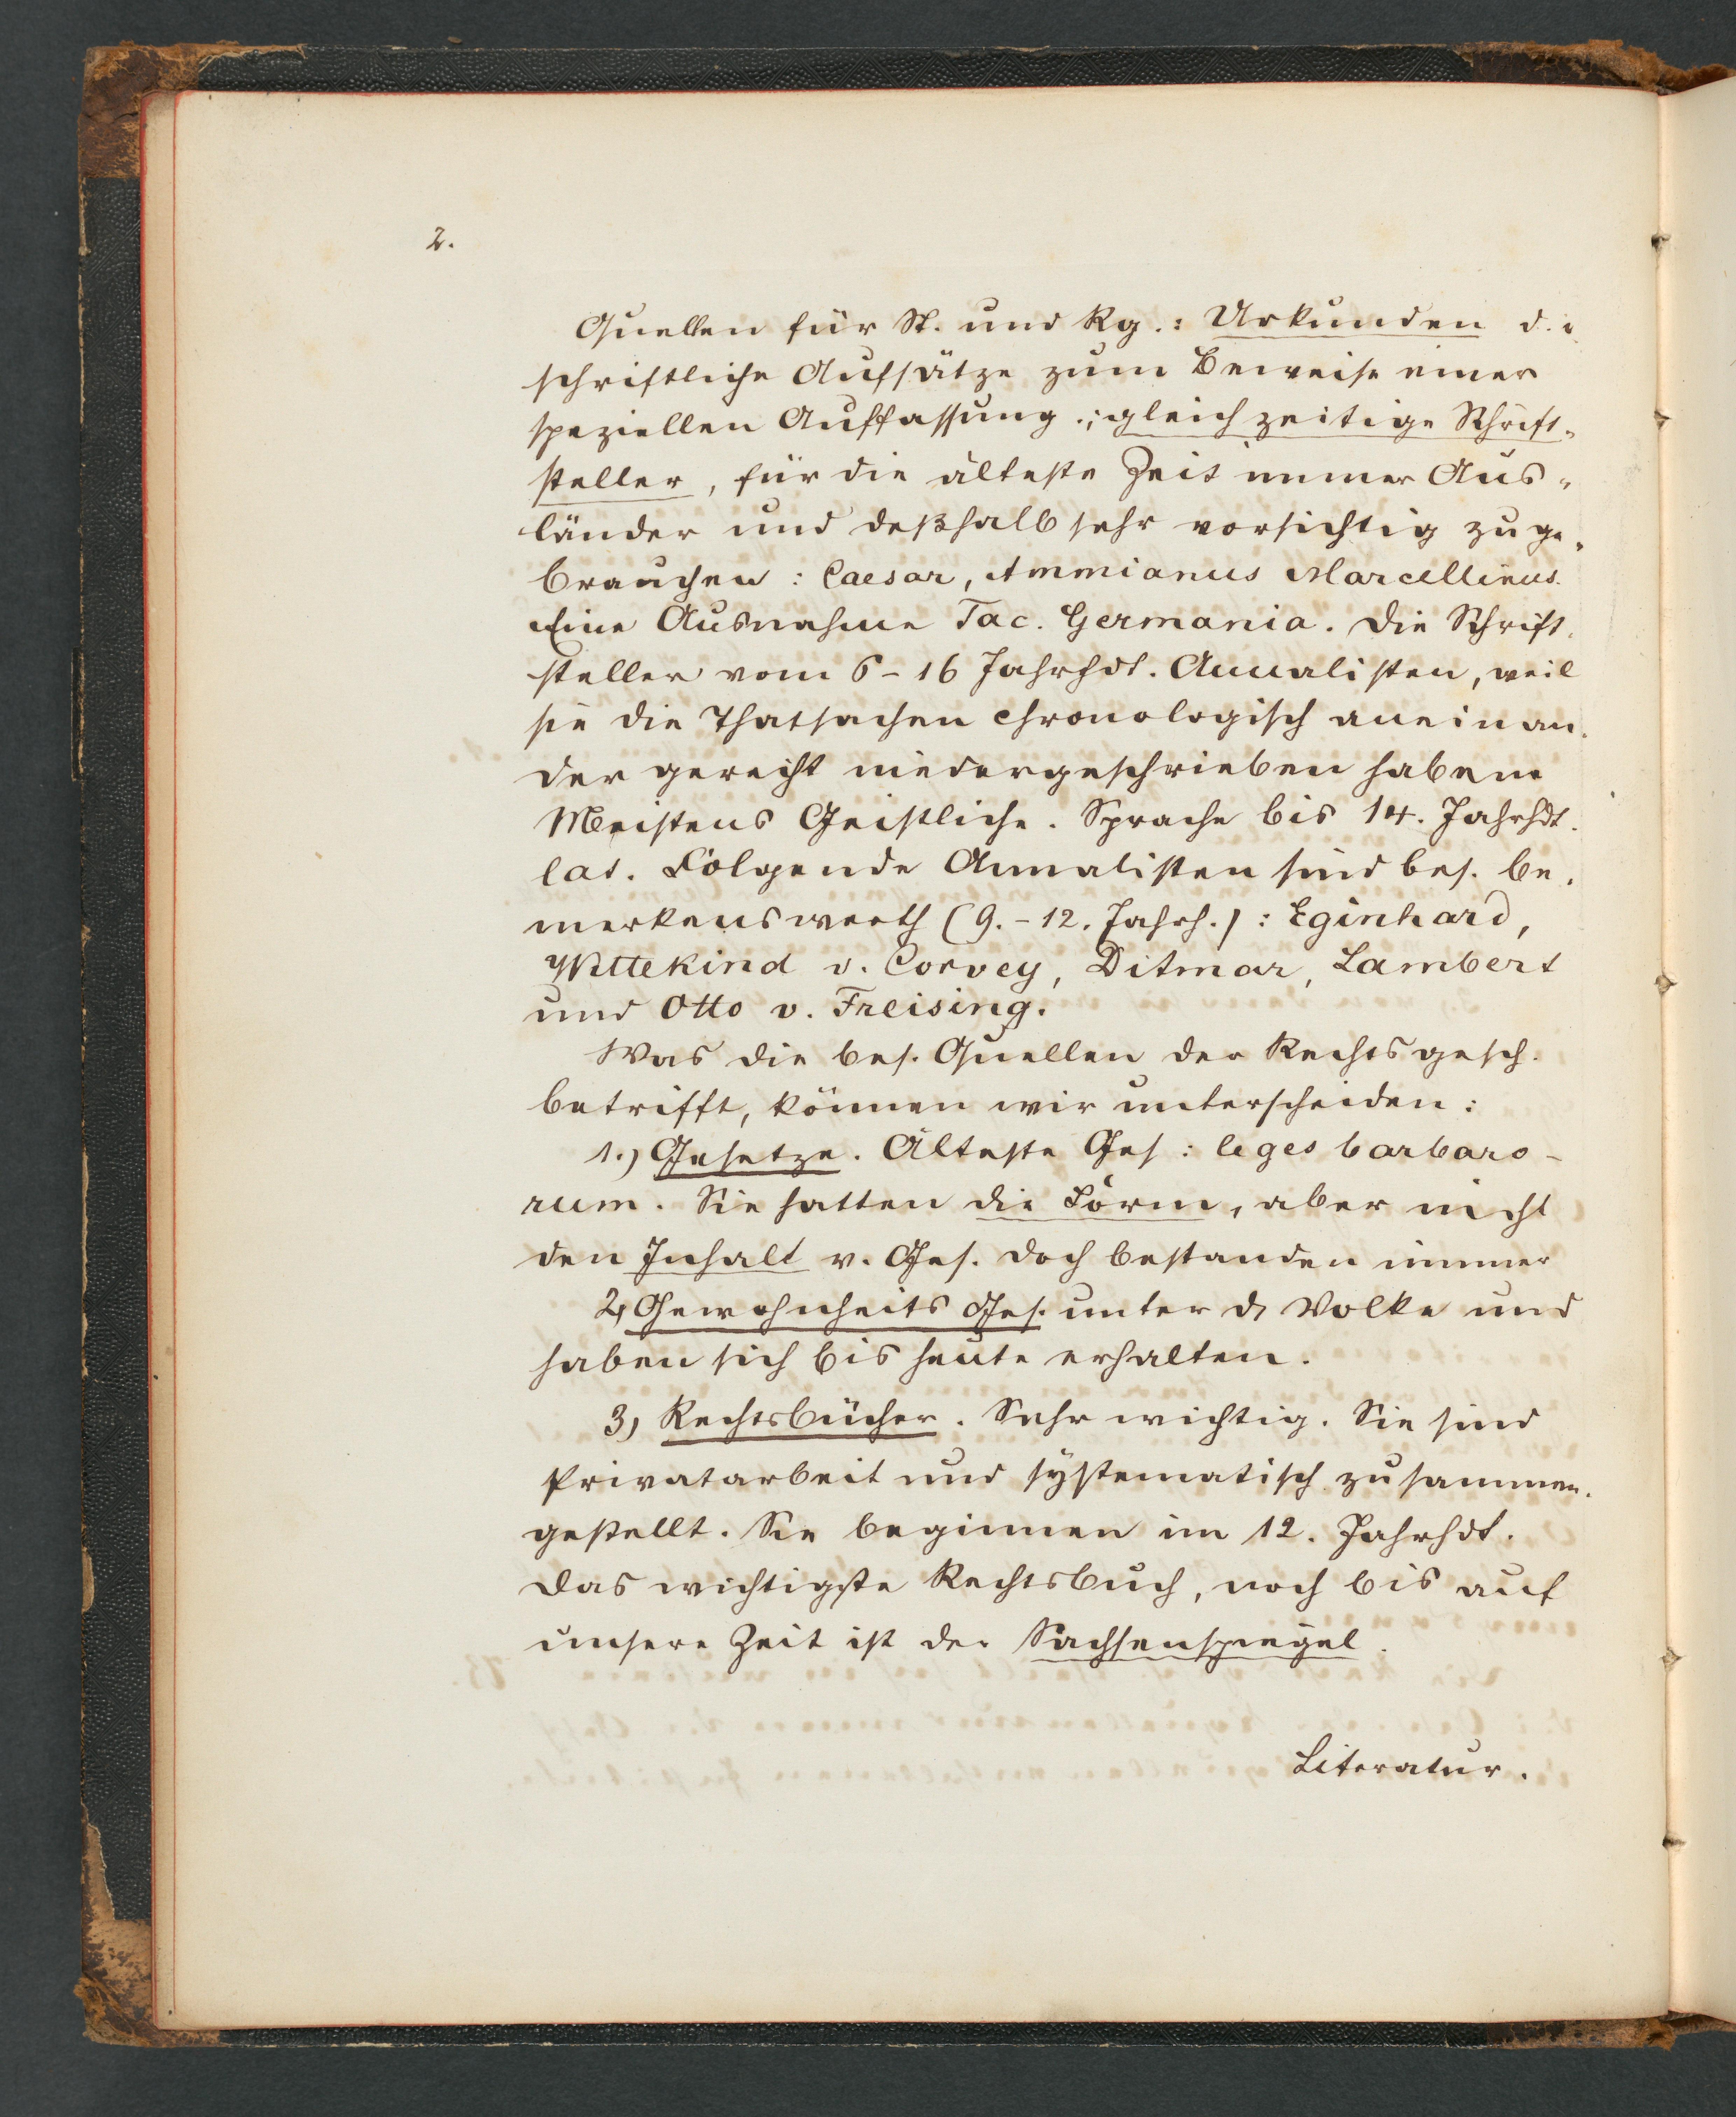 2.
Quellen für St. und Rg.: Urkunden d. i.
schriftliche Aufsätze zum Beweise einer
speziellen Auffassung.; gleichzeitige Schrift-
steller, für die älteste Zeit immer Aus-
länder und deßhalb sehr vorsichtig zu ge-
brauchen: Caesar, Ammianus Marcellinus.
Eine Ausnahme Tac. Germania. Die Schrift-
steller vom 6-16 Jahrhdt. Annalisten, weil
sie die Thatsachen chronologisch aneinan-
der gereiht niedergeschrieben haben.
Meistens Geistliche. Sprache bis 14. Jahrhdt.
lat. Folgende Annalisten sind bes. be-
merkenswerth (9.-12. Jahrh.): Eginhard,
Wittekind v. Corvey, Ditmar, Lambert
und Otto v. Freising.
Was die bes. Quellen der Rechtsgesch.
betrifft, können wir unterscheiden:
1.) Gesetze. Älteste Ges: leges barbaro-
rum. Sie hatten die Form, aber nicht
den Inhalt v. Ges. Doch bestanden immer
2, Gewohnheits Ges. unter d. Volke und
haben sich bis heute erhalten.
3) Rechtsbücher. Sehr wichtig. Sie sind
Privatarbeit und systematisch zusammen-
gestellt. Sie beginnen im 12. Jahrhdt.
Das wichtigste Rechtsbuch, noch bis auf
unsere Zeit ist der Sachsenspiegel.
Literatur.